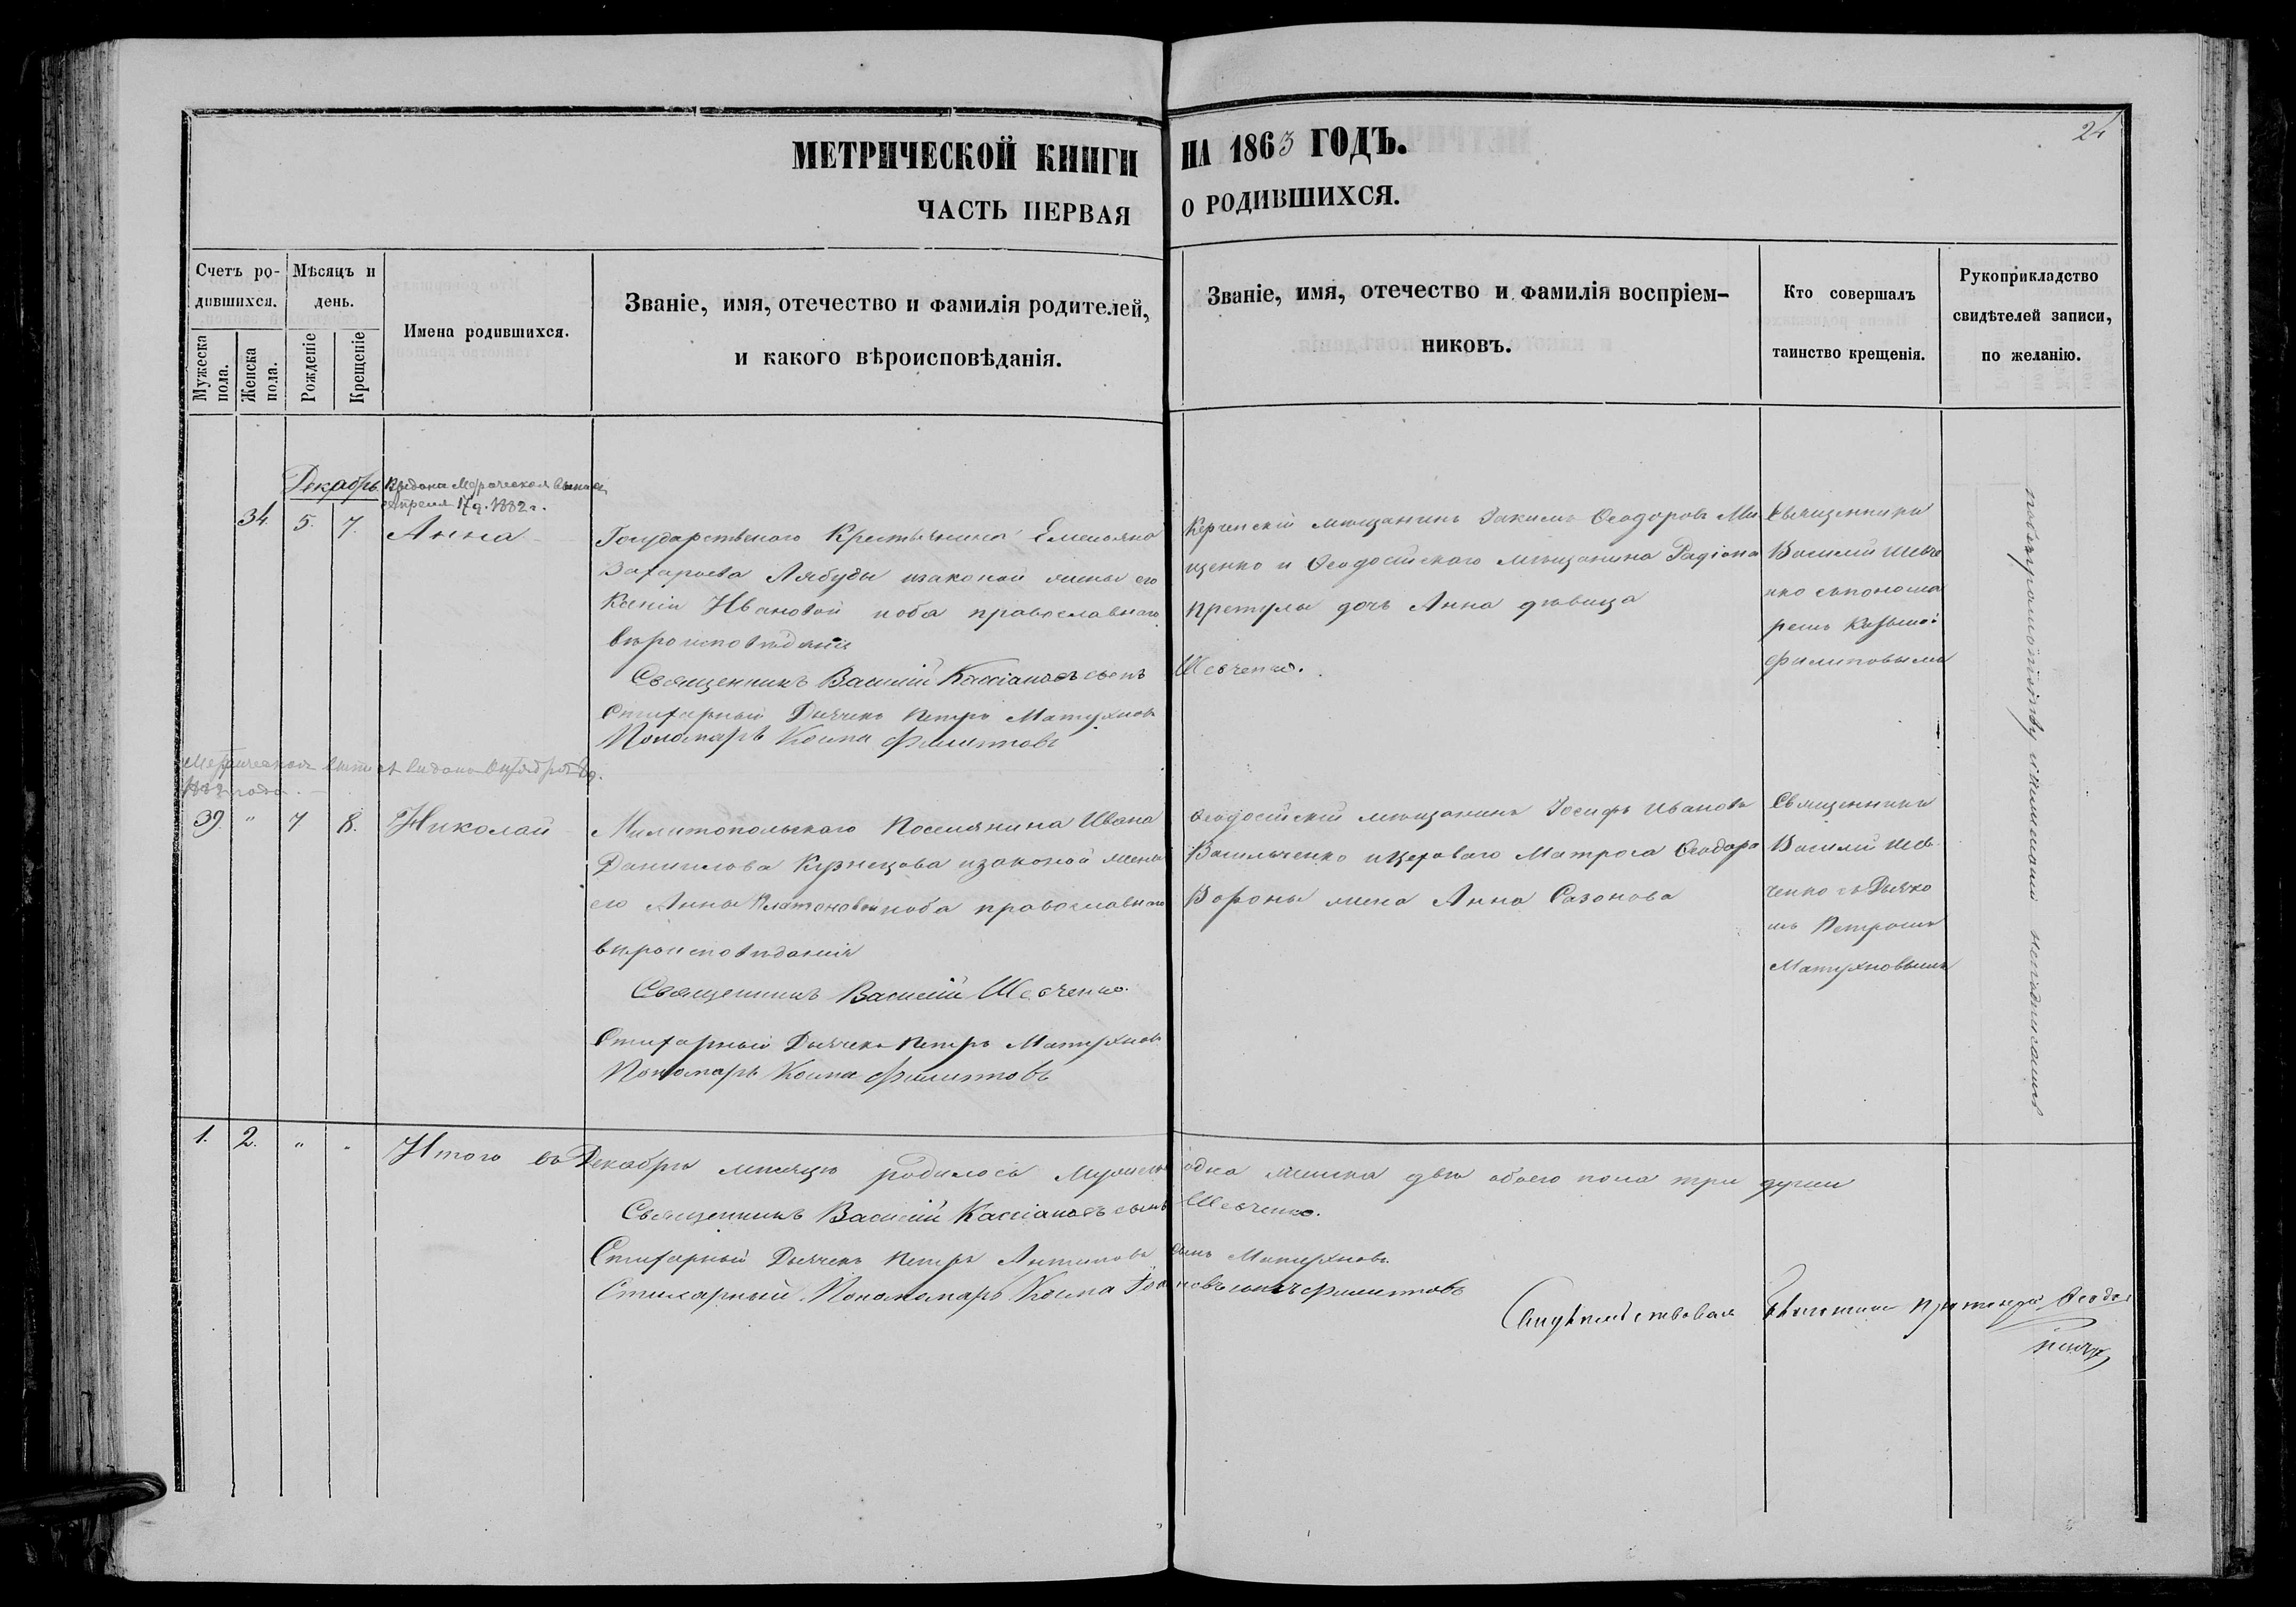 МЕТРИЧЕСКОЙ КНИГИ НА 1863 ГОДЪ.
24
ЧАСТЬ ПЕРВАЯ О РОДИВШИХСЯ.
Счетъ ро-
дившихся.
Мужеска пола.
Женска пола.
Мѣсяцъ и
день.
Рожденіе
Крещеніе
Имена родившихся.
Званіе, имя, отечество и фамилія родителей,
и какого вѣроисповѣданія.
Званіе, имя, отечество и фамилія воспріем-
никовъ.
Кто совершалъ
таинство крещенія.
Рукоприкладство
свидѣтелей записи,
по желанію.
Декабрь
Апреля 17 д. 1882 г.
34. 5. 7. Анна
Государственаго Крестьянина Емельяна
Захарьева Лябуды изаконой жены его
Ксеніи Ивановой иоба православнаго
вѣроисповѣданія
Священникъ Василій Кассіановъ сынъ Шевченко.
Стихарный Дьячекъ Петръ Матухновъ
Пономарь Косма Филиповъ
Керченскій мещанинъ Иакимъ Ѳеодоровъ Ми
щенко и Ѳеодосійскаго мещанина Радіона
Претулы дочь Анна девица
Священникъ
Василій Шевче
нко съпонома
ремъ Казьмой
Филиповымъ
39. " 7 8. Николай
Милитопольскаго Поселянина Ивана
Данилова Кузнецова изаконой жены
его Анна Платоновой иоба православнаго
вѣроисповѣданія
Священникъ Василій Шевченко.
Стихарный Дьячекъ Петръ Матухновъ
Пономарь Косма Филиповъ
Ѳеодосійскій мещанинъ Іосифъ Ивановъ
Васильченко Матроса Ѳеодора
Вороны жена Анна Сазонова
Священникъ
Василій Шев
ченко съ Дьячко
мъ Петромъ
Матухновымъ
1. 2. " " Итого въ Декабрѣ месяцѣ родилось Мужеска одна женска две обоего пола три души
Священникъ Василій Кассіановъ сынъ Шевченко.
Стихарный Дьячекъ Петръ Антиповъ сынъ Матухновъ.
Стихарный Пономарь Косма Іоановъ сынъ Филиповъ
Свидѣтельствовалъ